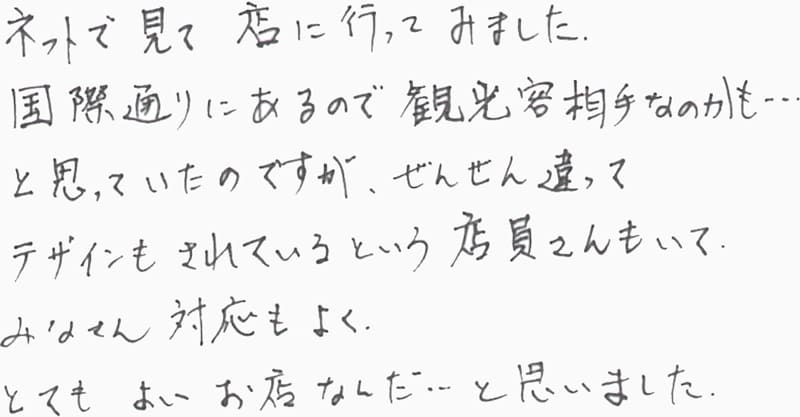 ネットで見て 店に行ってみました.
国際通りにあるので 観光客相手なのかも…
と思っていたのですが、ぜんぜん違って
デザインもされているという店員さんもいて.
みなさん 対応もよく.
とても よい お店なんだ…と思いました.